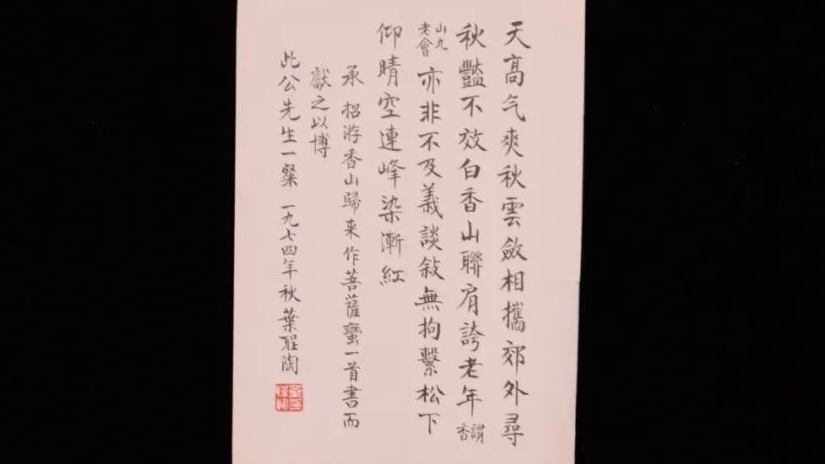 天高气爽秋雲斂相攜郊外尋
秋豔不效白香山聯肩誇老年謂香
山九老會亦非不及義談敍無拘繫松下
仰晴空連峰染漸紅
承招游香山歸来作菩薩蠻一首書而
獻之以博
此公先生一粲 一九七四年秋葉聖陶